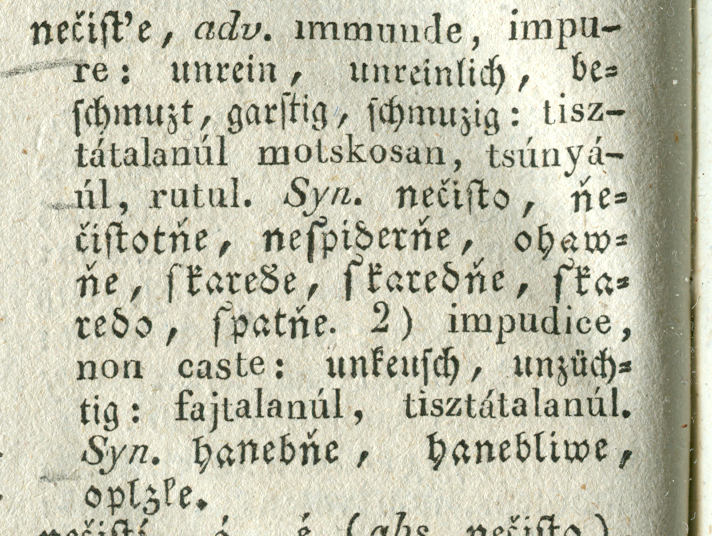 nečiſt'e, adv. immunde, impu-
re: unrein, unreinlich, be-
ſchmuzt, garſtig, ſchmuzig: tisz-
tátalanúl motskosan, tsúnyá-
úl, rutul. Syn. nečiſto, ňe-
čiſtotňe, neſpiderňe, ohaw-
ňe, ſkareďe, ſkaredňe, ſka-
redo, ſpatňe. 2) impudice,
non caste: unkeuſch, unzüch-
tig: fajtalanúl, tisztátalanúl.
Syn. hanebňe, hanebliwe,
oplzľe.
(abs. nečiſto)